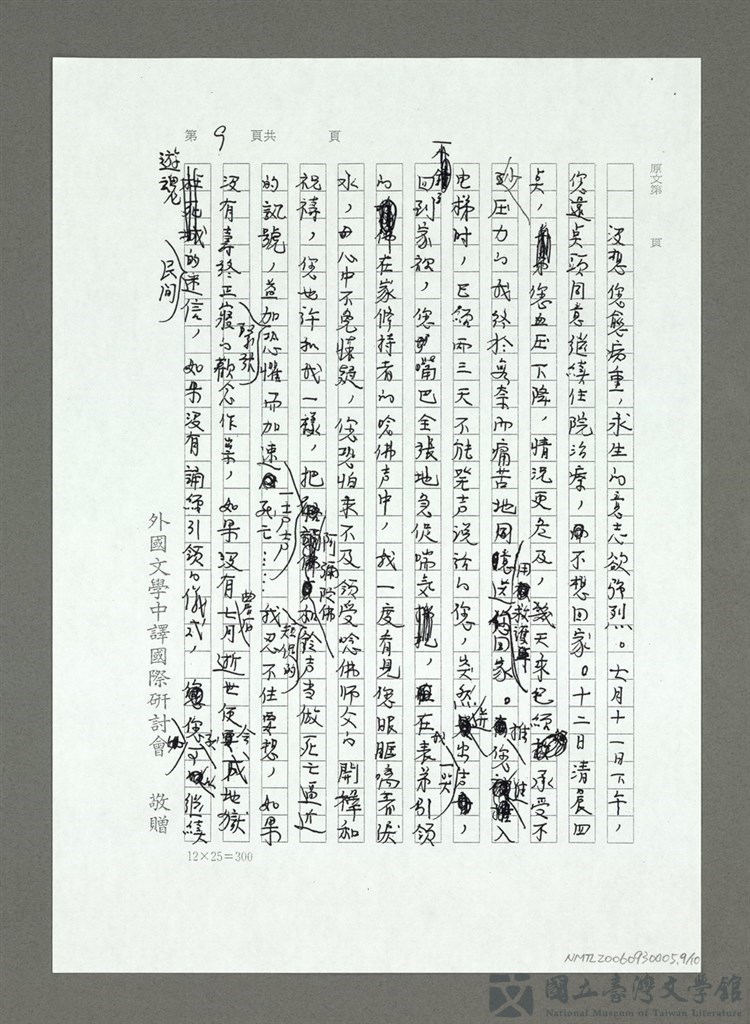 第 9 頁共 頁
原文第 頁
沒想您愈病重，求生的意志欲強烈。七月十一日下午，
您還點頭同意繼續住院治療，而不想回家。十二日清晨四
點，您血压下降，情況更危及，幾天來已經承受不
压力的我終於無奈而痛苦地用救護車回家。您推進入
电梯时，已經两三天不能発声說話的您，突然迸出声，
一回到家裡，您嘴巴全張地急促喘気，在表弟引領
的在家修持者的唸佛声中，我一度看見您眼眶噙著淚
水，心中不免懷疑，您恐怕來不及領受唸佛师父的開釋和
祝禱，您也许和我一樣，把阿彌陀佛和鈴声当做死亡逼近
的訊號，益加恐懼緊張而加速死亡……我忍不住要想，如果
沒有壽終正寢的觀念作祟，如果沒有農曆七月逝世便會成地獄
遊魂的民间迷信，如果沒有誦經引領的儀式，您可以繼續
外國文學中譯國際研討會 敬贈
12×25=300
NMTL20060930005,9/10
國立臺灣文學館
National Museum of Taiwan Literature